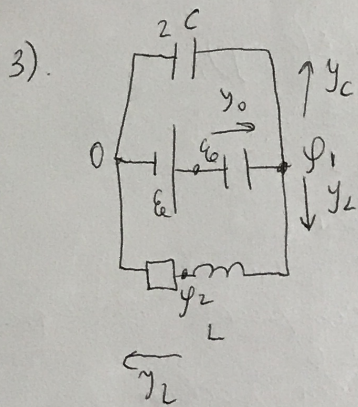 3).
2 C
y_C
y_0
0
ε
φ_1
ε
y_L
φ_2
L
y_L